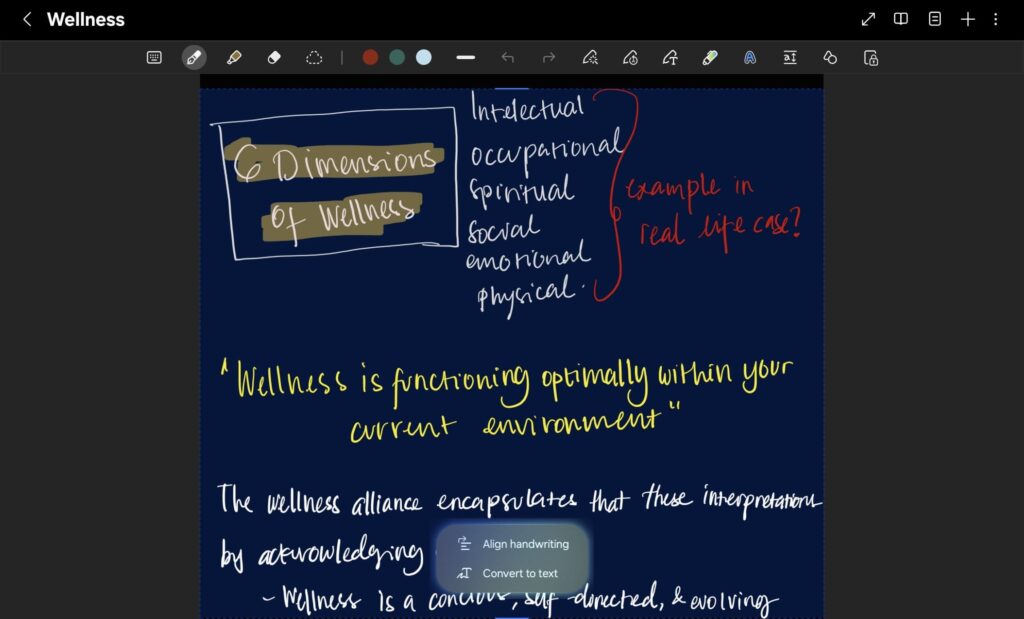 Wellness
6 Dimensions
of Wellness
Intelectual
occupational
spiritual
social
emotional
physical.
example in
real life case?
"Wellness is functioning optimally within your
current environment"
The wellness alliance encapsulates that these interpretations
by acknowledging
Align handwriting
Convert to text
- Wellness is a concious, self-directed, & evolving